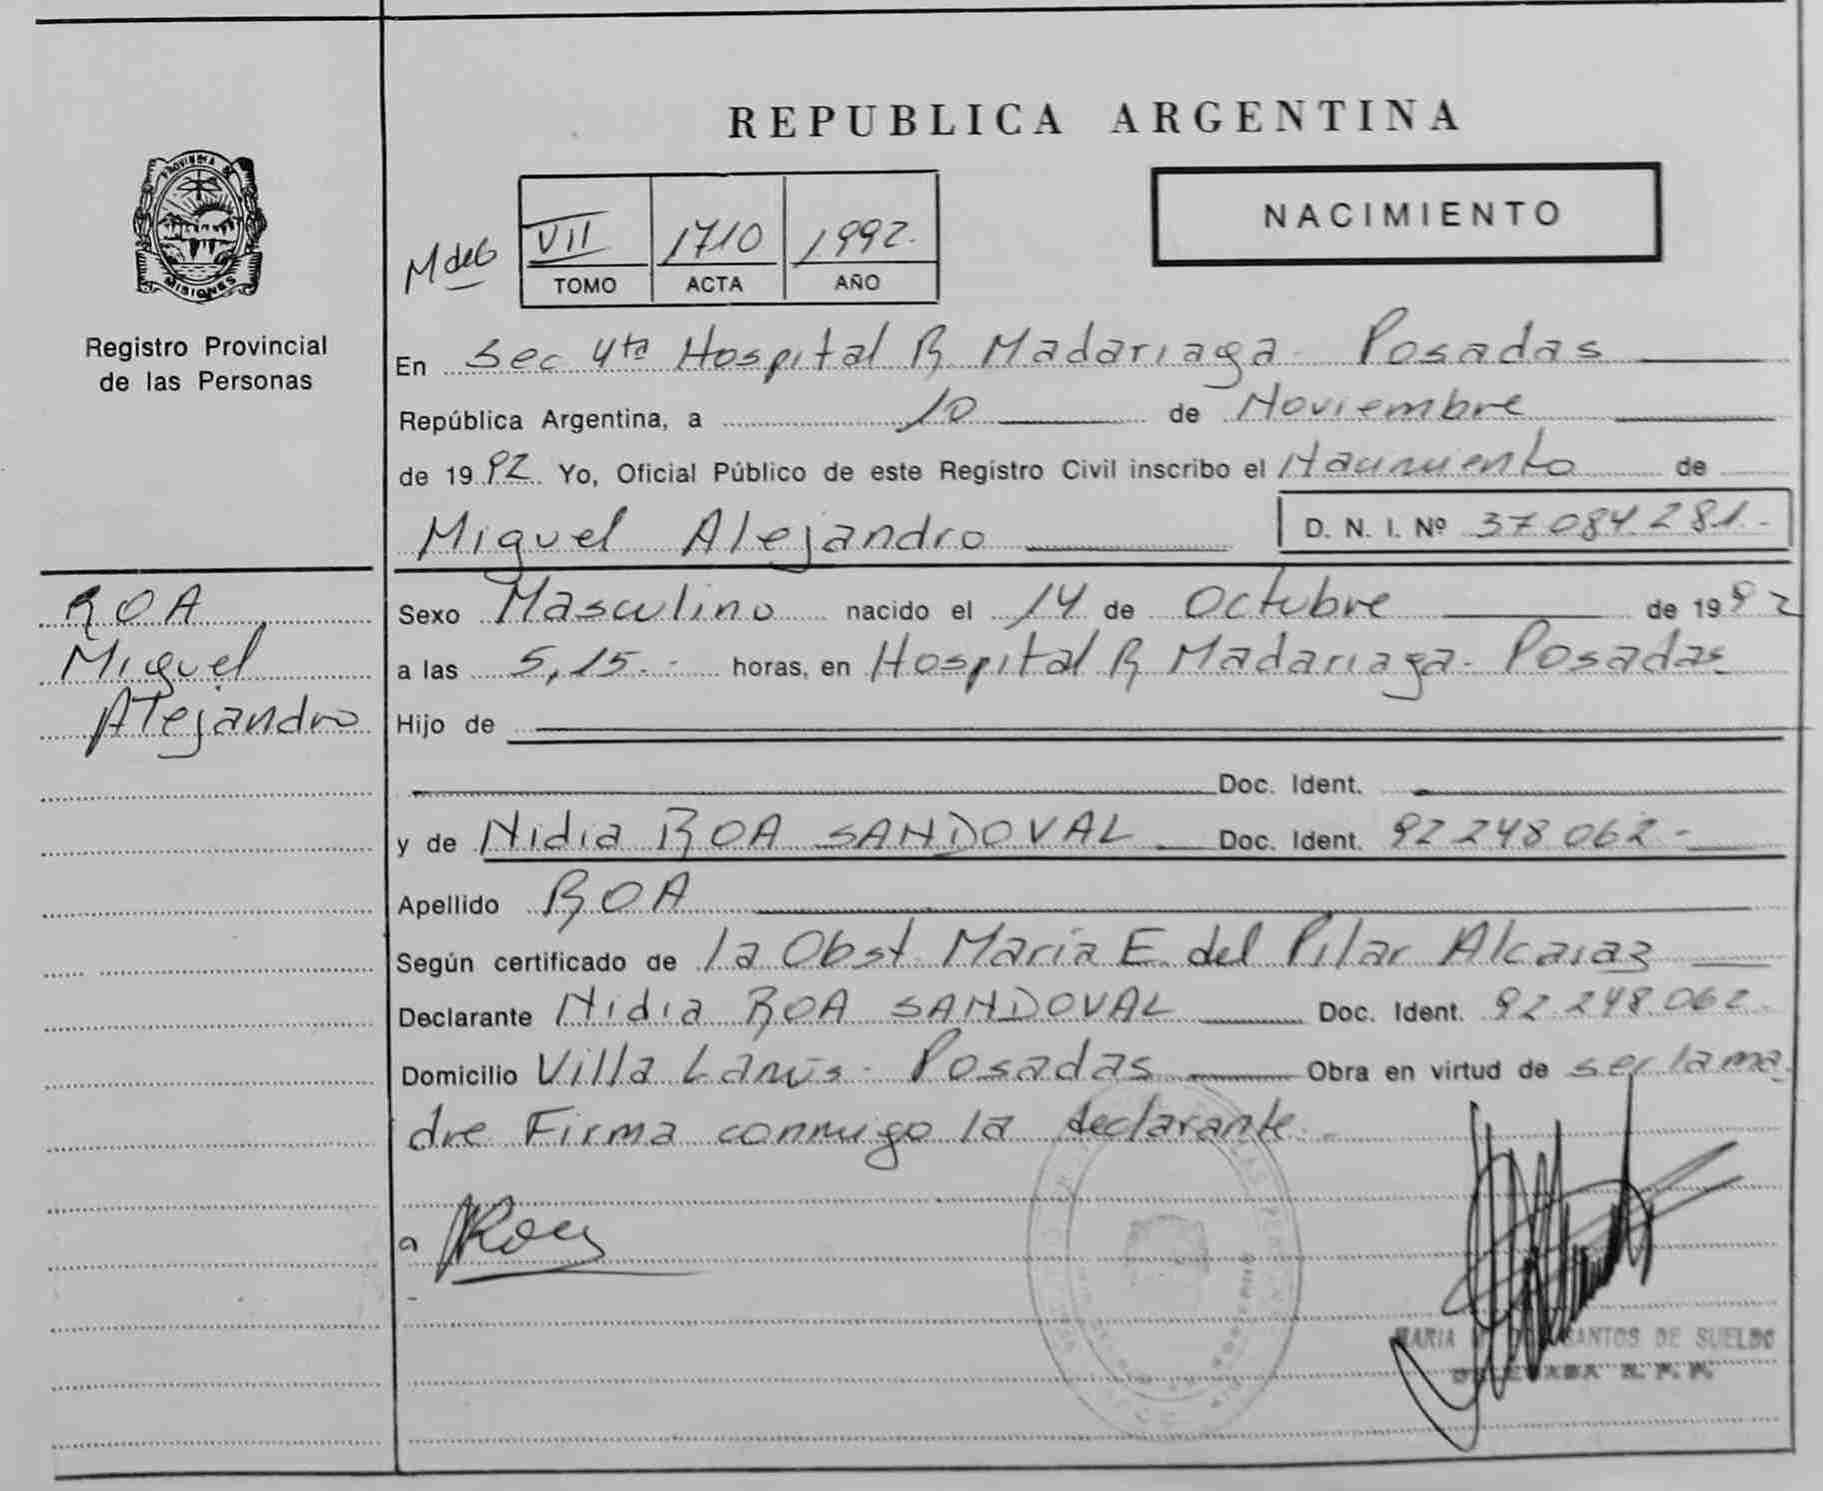 REPUBLICA ARGENTINA
PROVINCIA DE
MISIONES
Registro Provincial
de las Personas
NACIMIENTO
VII 1710 1992.
TOMO ACTA AÑO
En Sec 4ta Hospital R Madariaga - Posadas
República Argentina, a 10 de Noviembre
de 1992 Yo, Oficial Público de este Registro Civil inscribo el Nacimiento de
Miguel Alejandro D. N. I. Nº 37.084.281.-
ROA
Miguel
Alejandro
Sexo Masculino nacido el 14 de Octubre de 1992
a las 5,15.- horas, en Hospital R Madariaga - Posadas
Hijo de
Doc. Ident.
y de Nidia ROA SANDOVAL Doc. Ident. 92 248 062.-
Apellido ROA
Según certificado de la Obst. Maria E. del Pilar Alcaraz
Declarante Nidia ROA SANDOVAL Doc. Ident. 92 248.062.
Domicilio Villa Lanús - Posadas Obra en virtud de ser la ma
dre Firma conmigo la declarante.-
MARIA SANTOS DE SUELDO